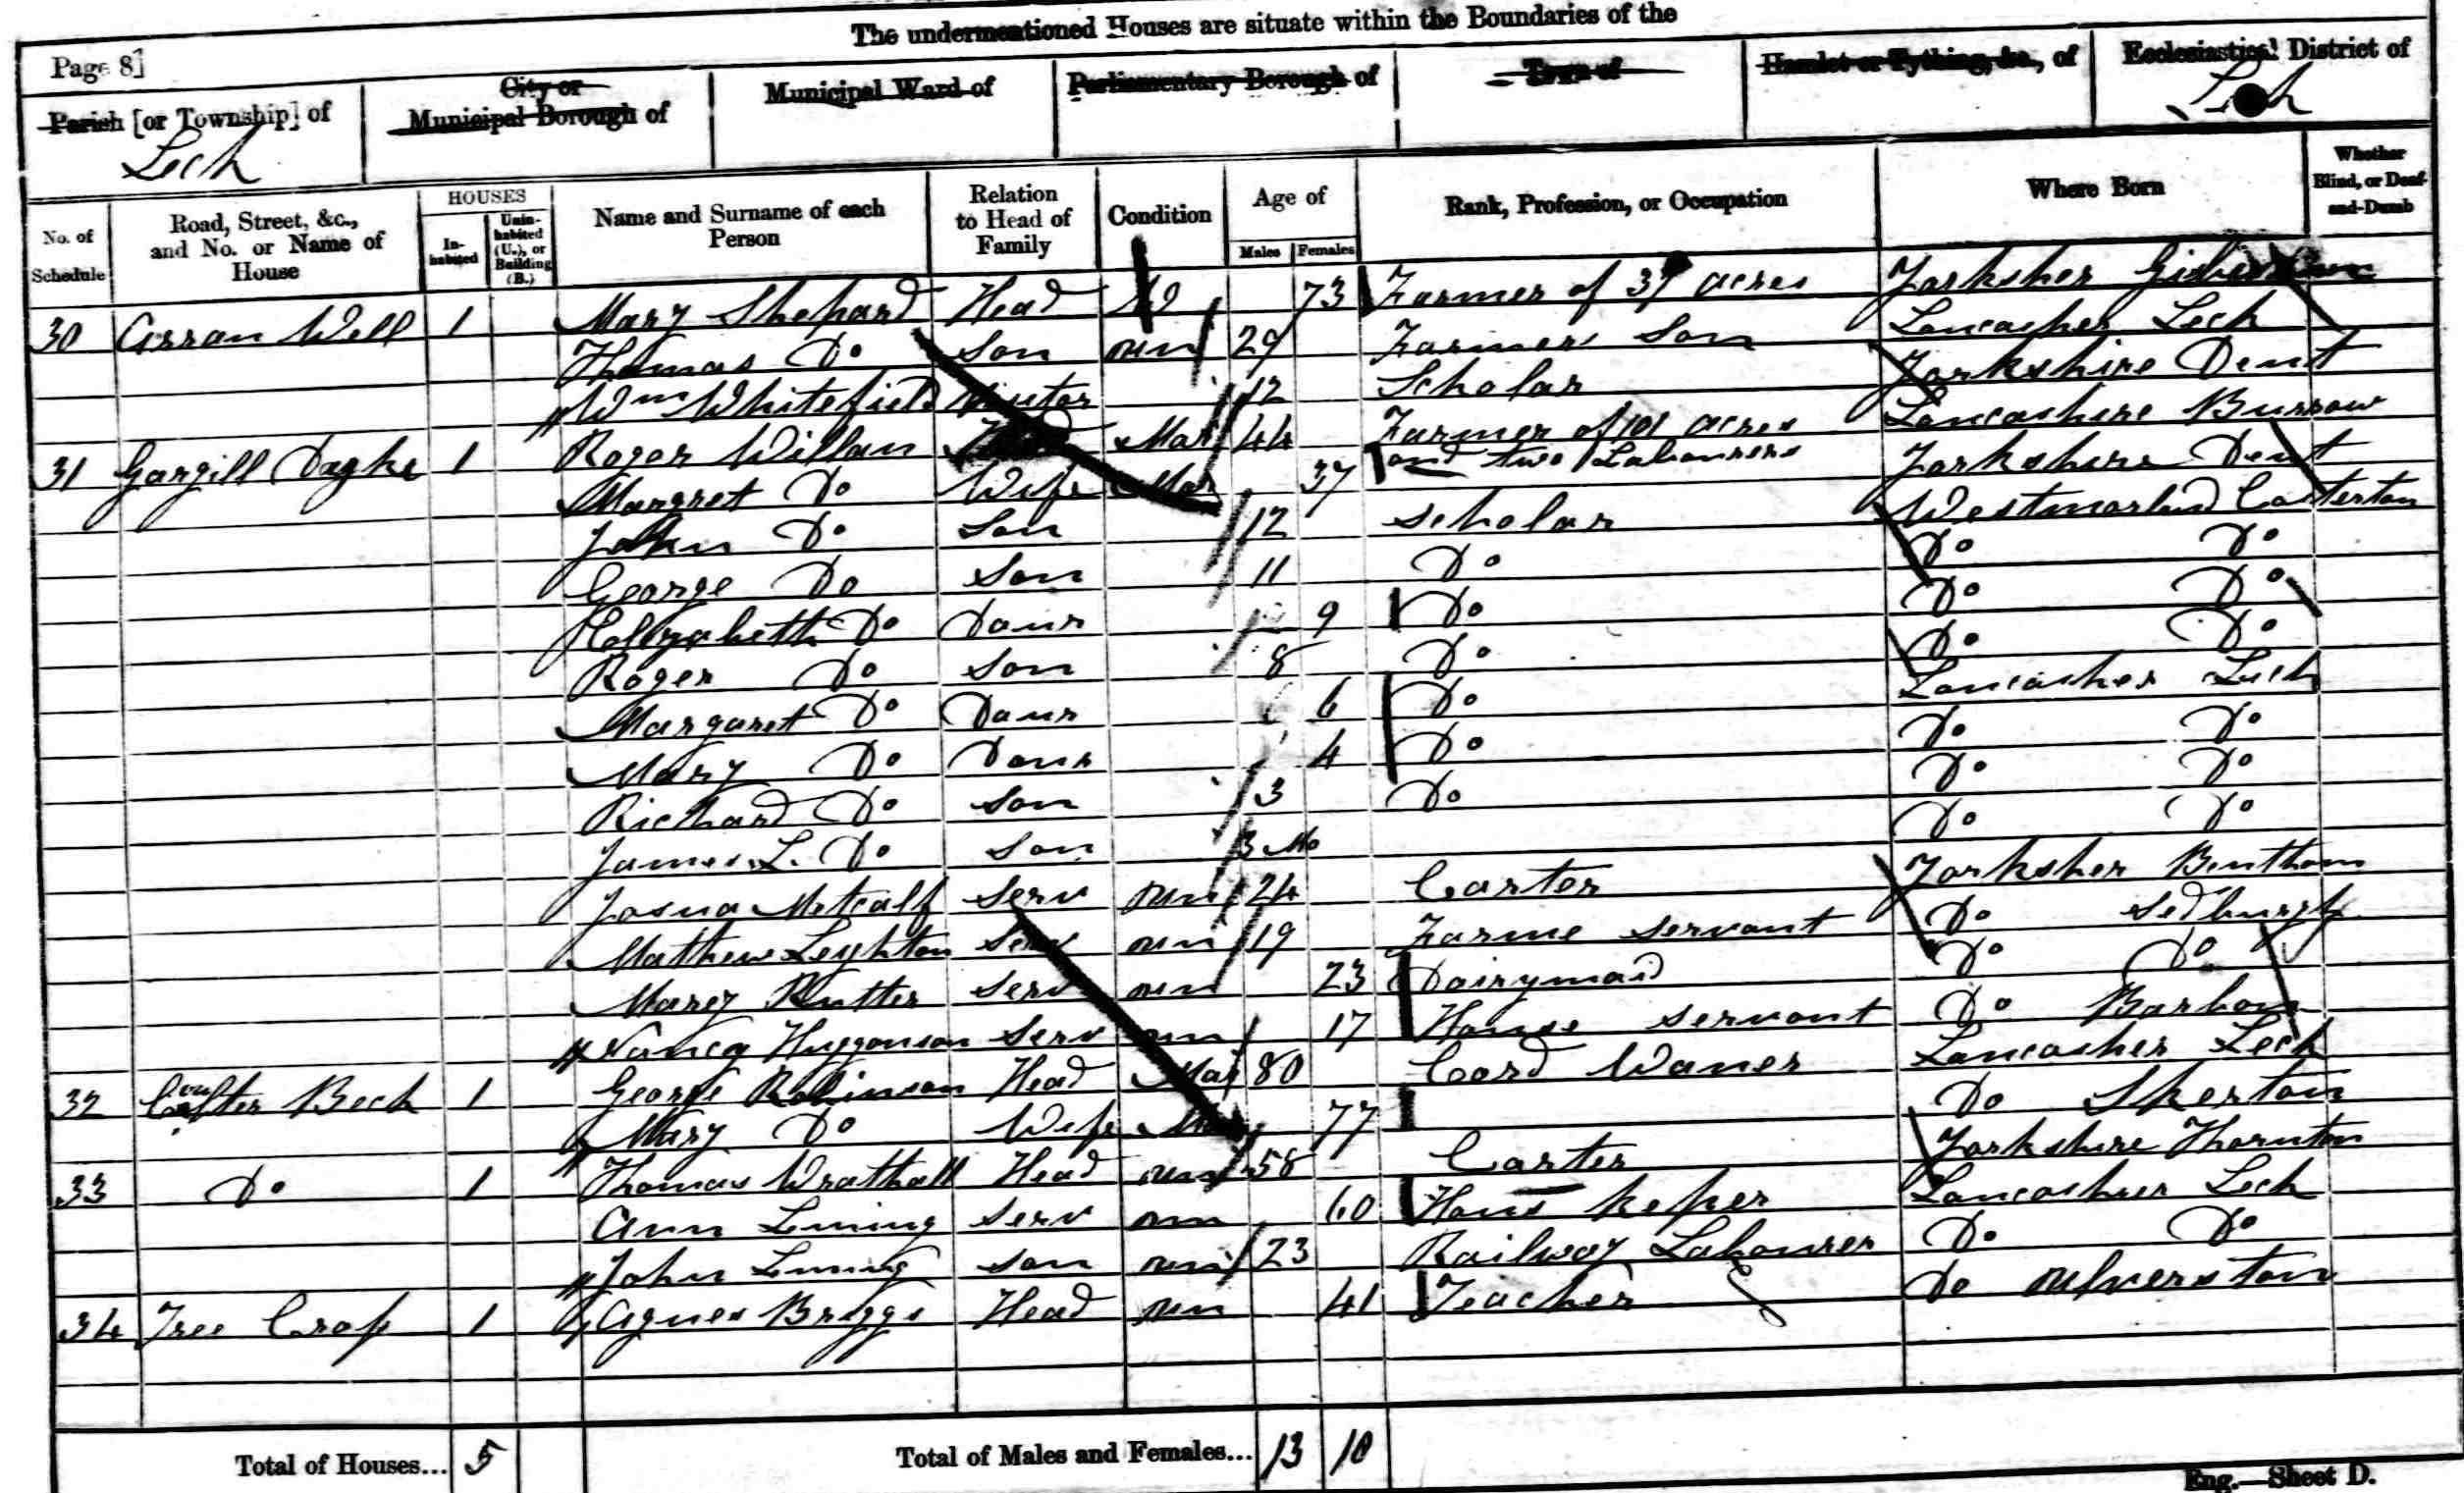 The undermentioned Houses are situate within the Boundaries of the
Page 8]
Parish [or Township] of
Leck
City or
Municipal Borough of
Municipal Ward of
Parliamentary Borough of
Town of
Hamlet or Tything, &c., of
Ecclesiastical District of
Leck
No. of
Schedule
Road, Street, &c.,
and No. or Name of
House
HOUSES
In-
habited
Unin-
habited
(U.), or
Building
(B.)
Name and Surname of each
Person
Relation
to Head of
Family
Condition
Age of
Males
Females
Rank, Profession, or Occupation
Where Born
Whether
Blind, or Deaf-
and-Dumb
30 Arran Well 1 Mary Shepard Head W 73 Farmer of acres Yorksher
Thomas Do Son un 29 Farmers Son Lancasher Leck
Wm Whitefield Visitor 12 Scholar Yorkshire Dent
31 Gargill 1 Roger Willan Mar 44 Farmer of 101 acres Lancashire Burrow
Margret Do Wife Mar 37 and two Labourers Yorkshire Dent
John Do Son 12 Scholar Westmorland Casterton
George Do Son 11 Do Do Do
Do Daur 9 Do Do Do
Roger Do Son 8 Do Do Do
Margaret Do Daur 6 Do Lancasher Leck
Mary Do Daur 4 Do Do Do
Richard Do Son 3 Do Do Do
James L. Do Son 3 Mo Do Do
Josua Metcalf Serv un 24 Carter Yorksher Bentham
Mathew Leyhton Serv un 19 Farme Servant Do Sedburgh
Marey Rutter Serv un 23 Dairymaid Do Do
Nancy Huggonson Serv un 17 House Servant Do Barbon
32 Beck 1 George Robinson Head Mar 80 Cord Waner Lancasher Leck
Mary Do Wife Mar 77 Do Skerton
33 Do 1 Thomas Wrathall Head un 58 Carter Yorkshire Thornton
Ann Lming Serv un 60 Hous keper Lancasher Leck
John Lming Son un 23 Railway Labourer Do Do
34 Tree Crap 1 Agnes Briggs Head un 41 Teacher Do ulverston
Total of Houses... 5
Total of Males and Females... 13 10
Eng.—Sheet D.